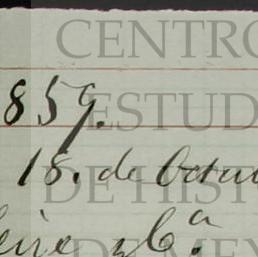 CENTRO
859.
ESTUD
18. de Octu
DE HIST
y C.ª
DE MEX